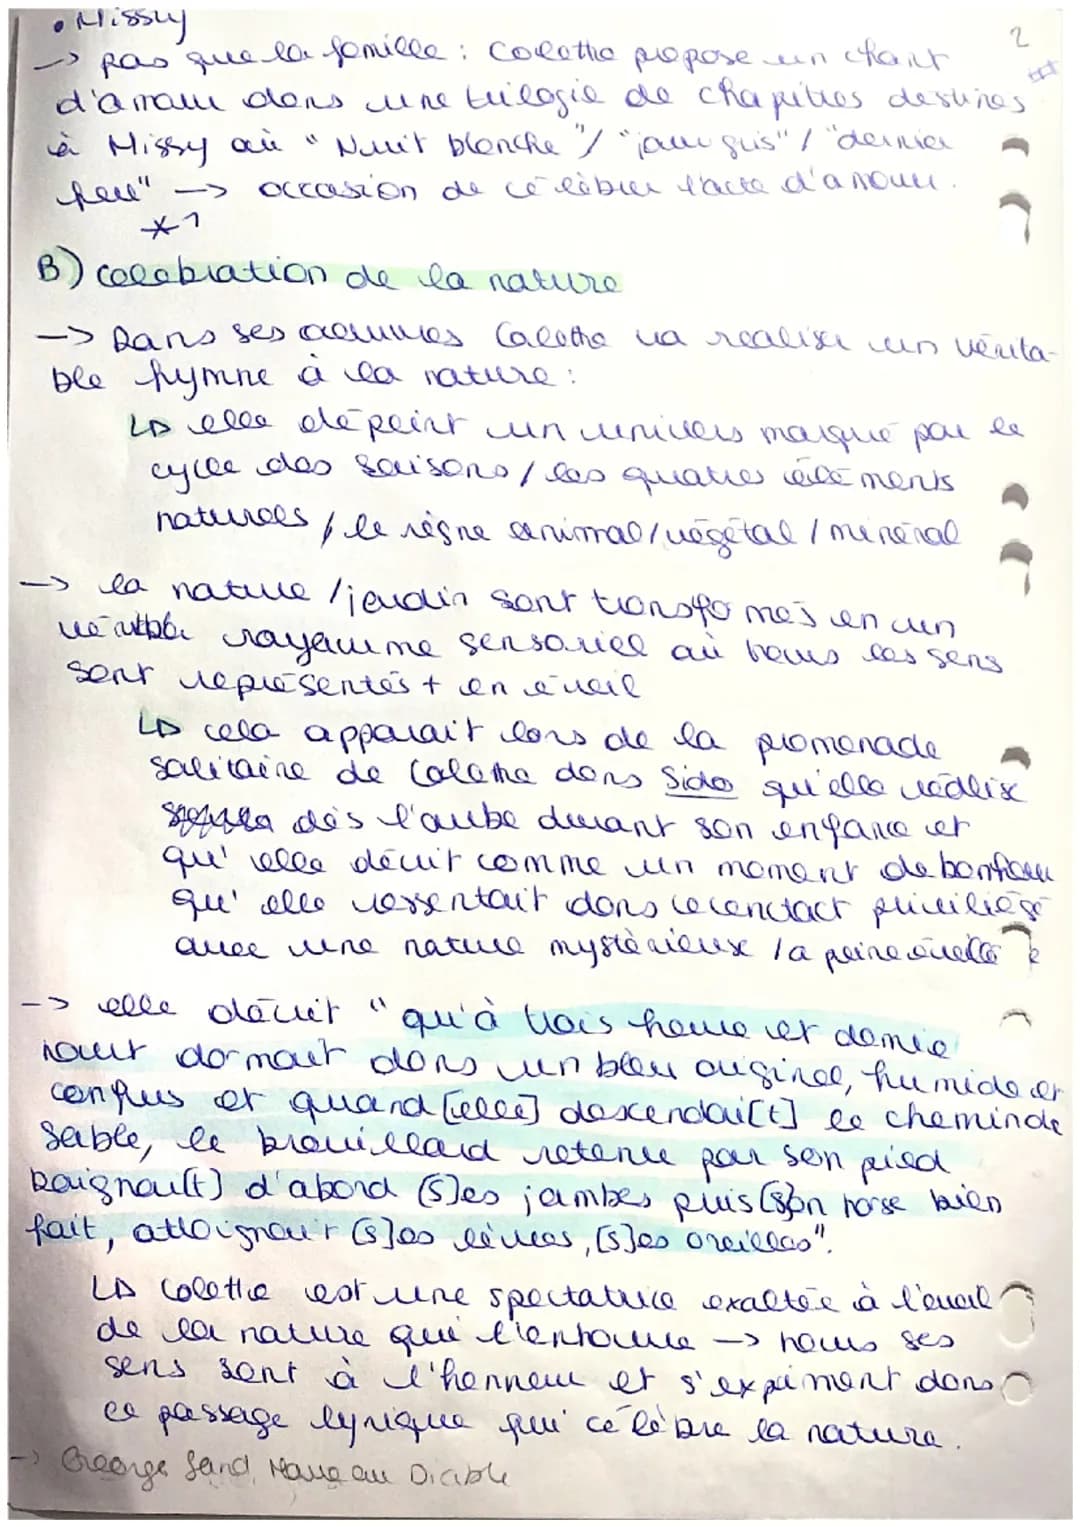 • Missy
2
-> pas que la famille : Colette propose un chant
d'amour dans une trilogie de chapitres destinés
à Missy où " Nuit blanche " / " jour gris " / " dernier
feu " -> occasion de célébrer l'acte d'amour.
*1
B) celebration de la nature
-> Dans ses oeuvres Colette va realiser un vérita-
ble hymne à la nature :
↳ elle dépeint un univers marqué par le
cycle des saisons / les quatres éléments
naturels / le règne animal / végétal / minéral
-> la nature / jardin sont transformés en un
véritable royaume sensoriel où tous les sens
sont représentés + en éveil
↳ cela apparait lors de la promenade
solitaire de Colette dans Sido qu'elle réalise
dès l'aube durant son enfance et
qu'elle décrit comme un moment de bonheur
qu'elle ressentait dans le contact privilégié
avec une nature mystérieuse / a peine éveillée
-> elle décrit " qu'à trois heure et demie
tout dormait dans un bleu originel, humide et
confus et quand [elle] descendai[t] le chemin de
sable, le brouillard retenu par son poied
baignai[t] d'abord [s]es jambes puis [s]on torse bien
fait, atteignait [s]es lèvres, [s]es oreilles ".
↳ Colette est une spectatrice exaltée à l'éveil
de la nature qui l'entoure -> tous ses
sens sont à l'honneur et s'expriment dans
ce passage lyrique qui célèbre la nature.
-> George Sand, Mare au Diable